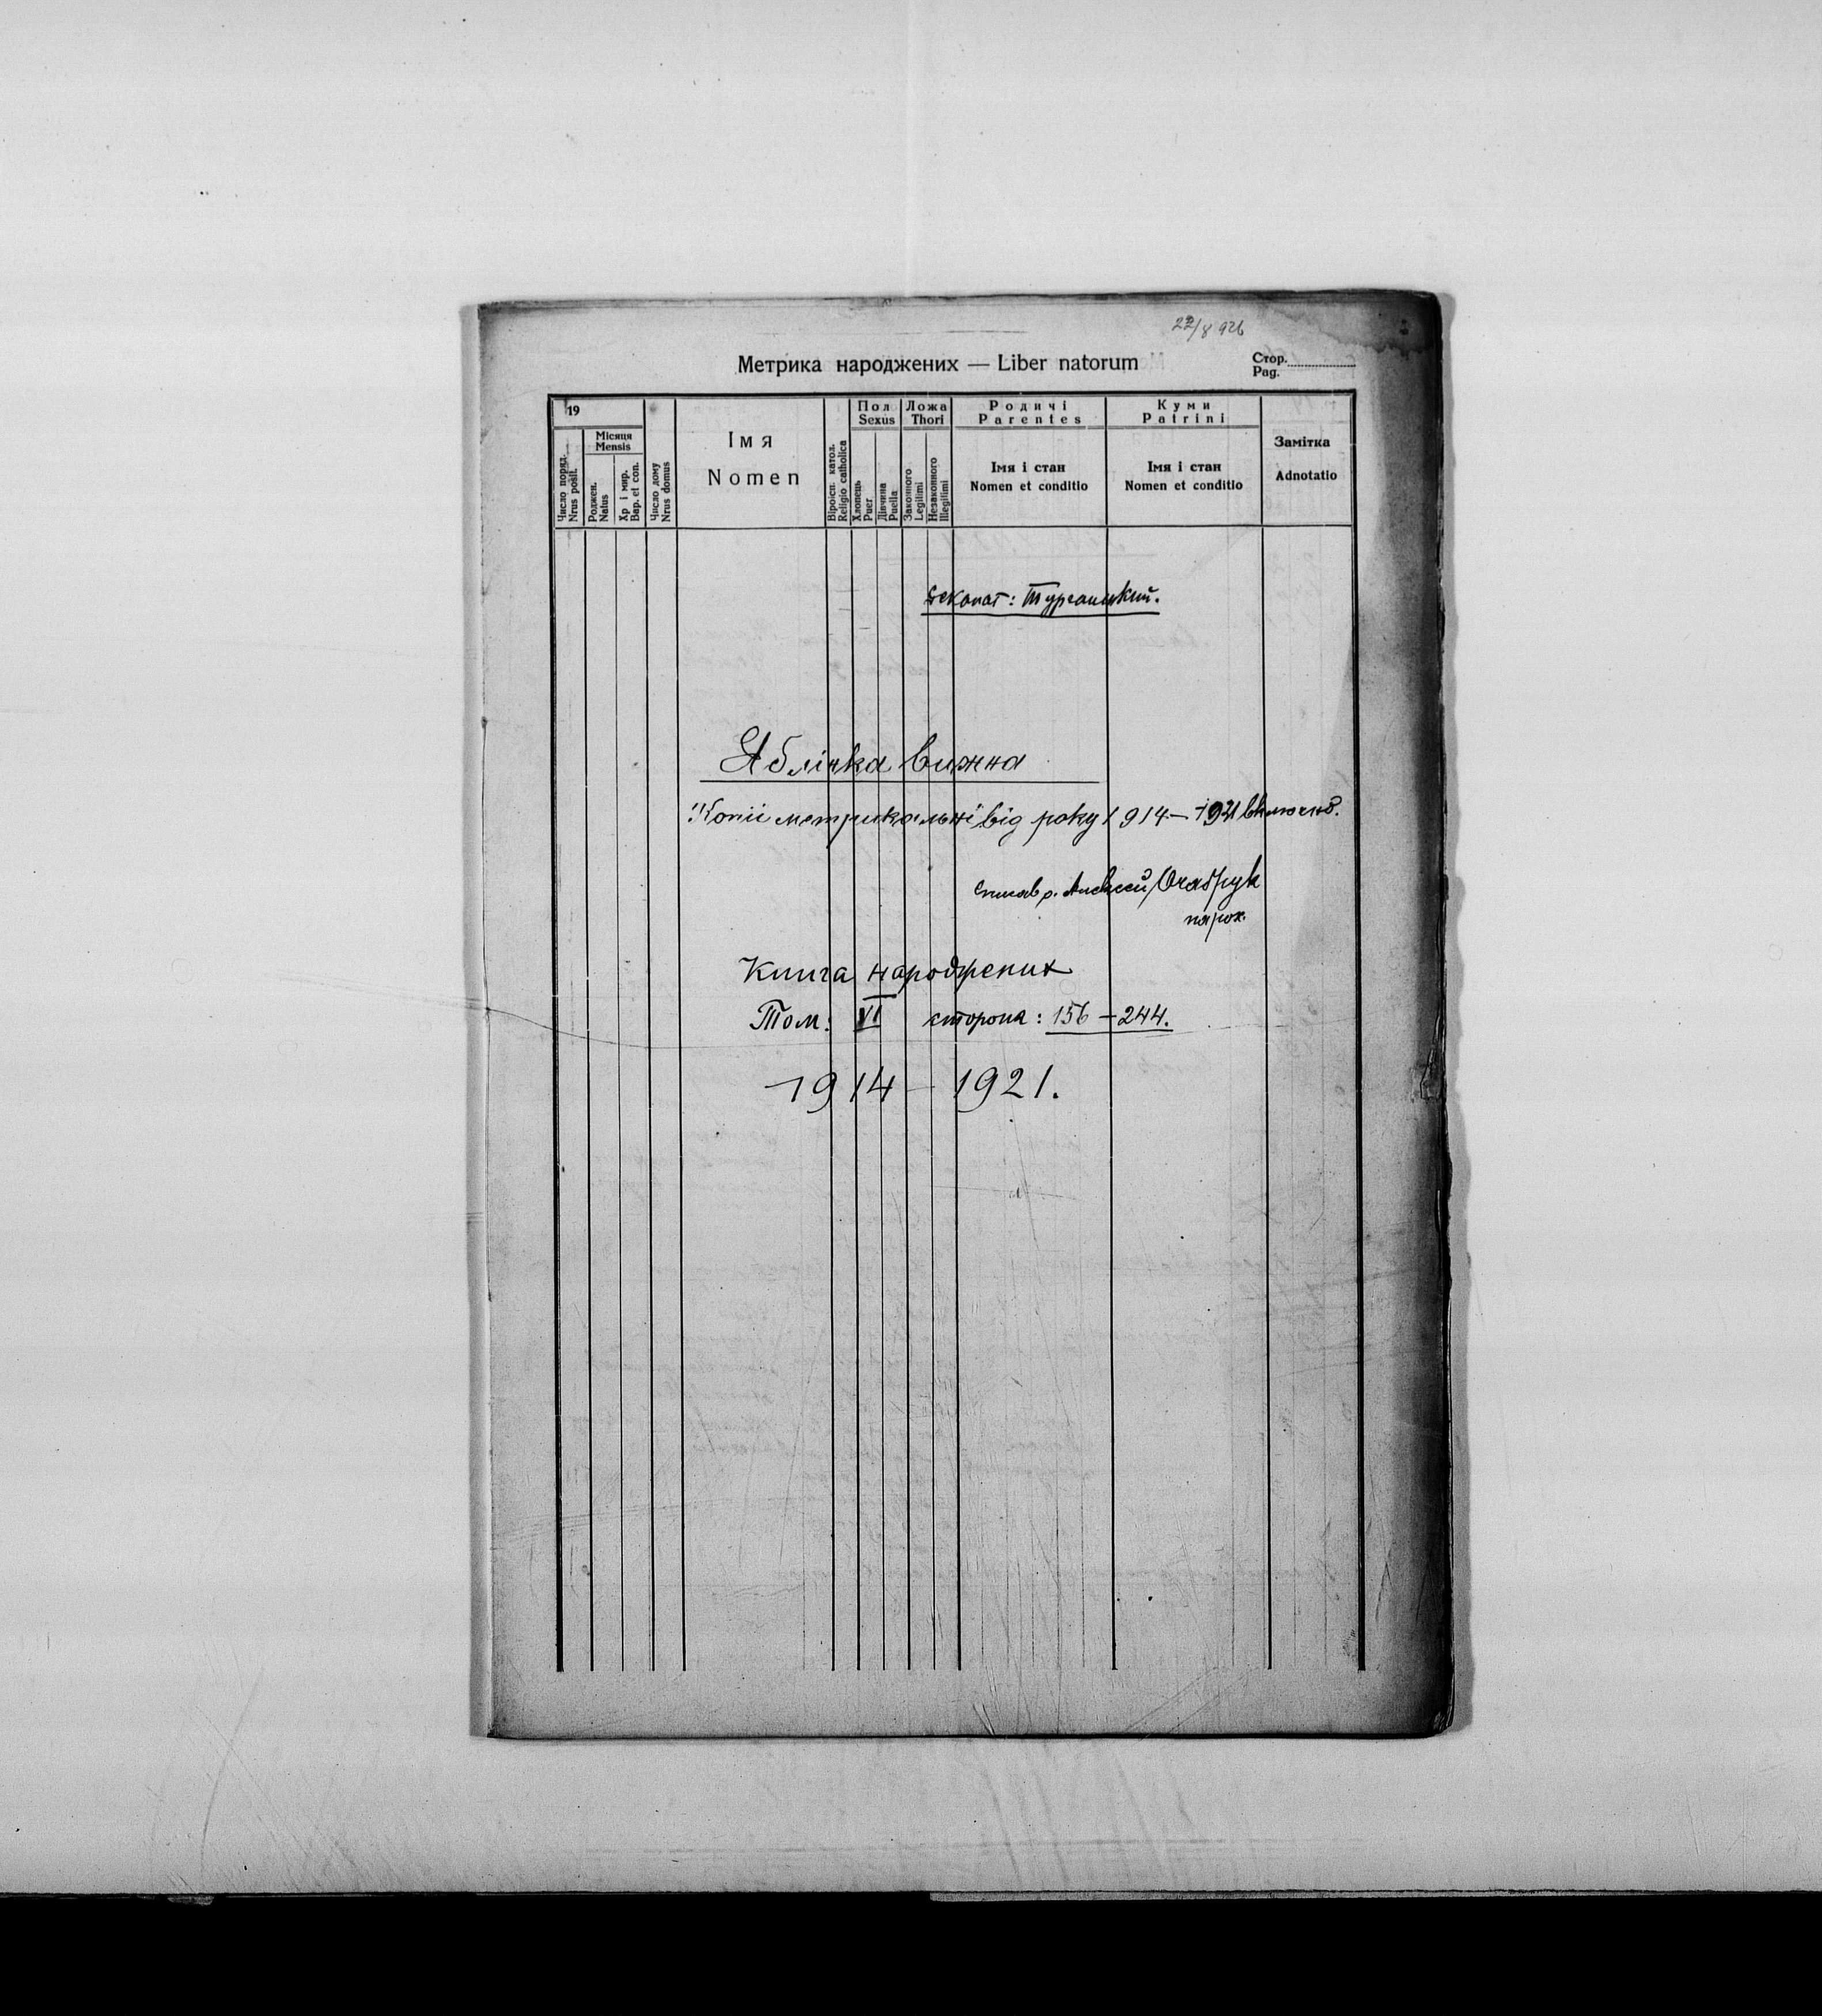 22/8 926
Метрика народжених — Liber natorum
Стор.
Pag.
19
Місяця
Mensis
Число поряд.
Nrus posit.
Роджен.
Natus
Хр і мир.
Bap. et con.
Число дому
Nrus domus
Імя
Nomen
Віроісп. катол.
Religio catholica
Пол
Sexus
Хлопець
Puer
Дівчина
Puella
Ложа
Thori
Законного
Legitimi
Незаконного
Illegitimi
Родичі
Parentes
Імя і стан
Nomen et conditio
Куми
Patrini
Імя і стан
Nomen et conditio
Замітка
Adnotatio
Деканат: Турчанский.
Яблінка вижна
Копії метрикальні від року 1914 — 1921 включно.
списав о. Алексей
парох.
Книга народжених
Том: VI сторона: 156 — 244.
1914 — 1921.